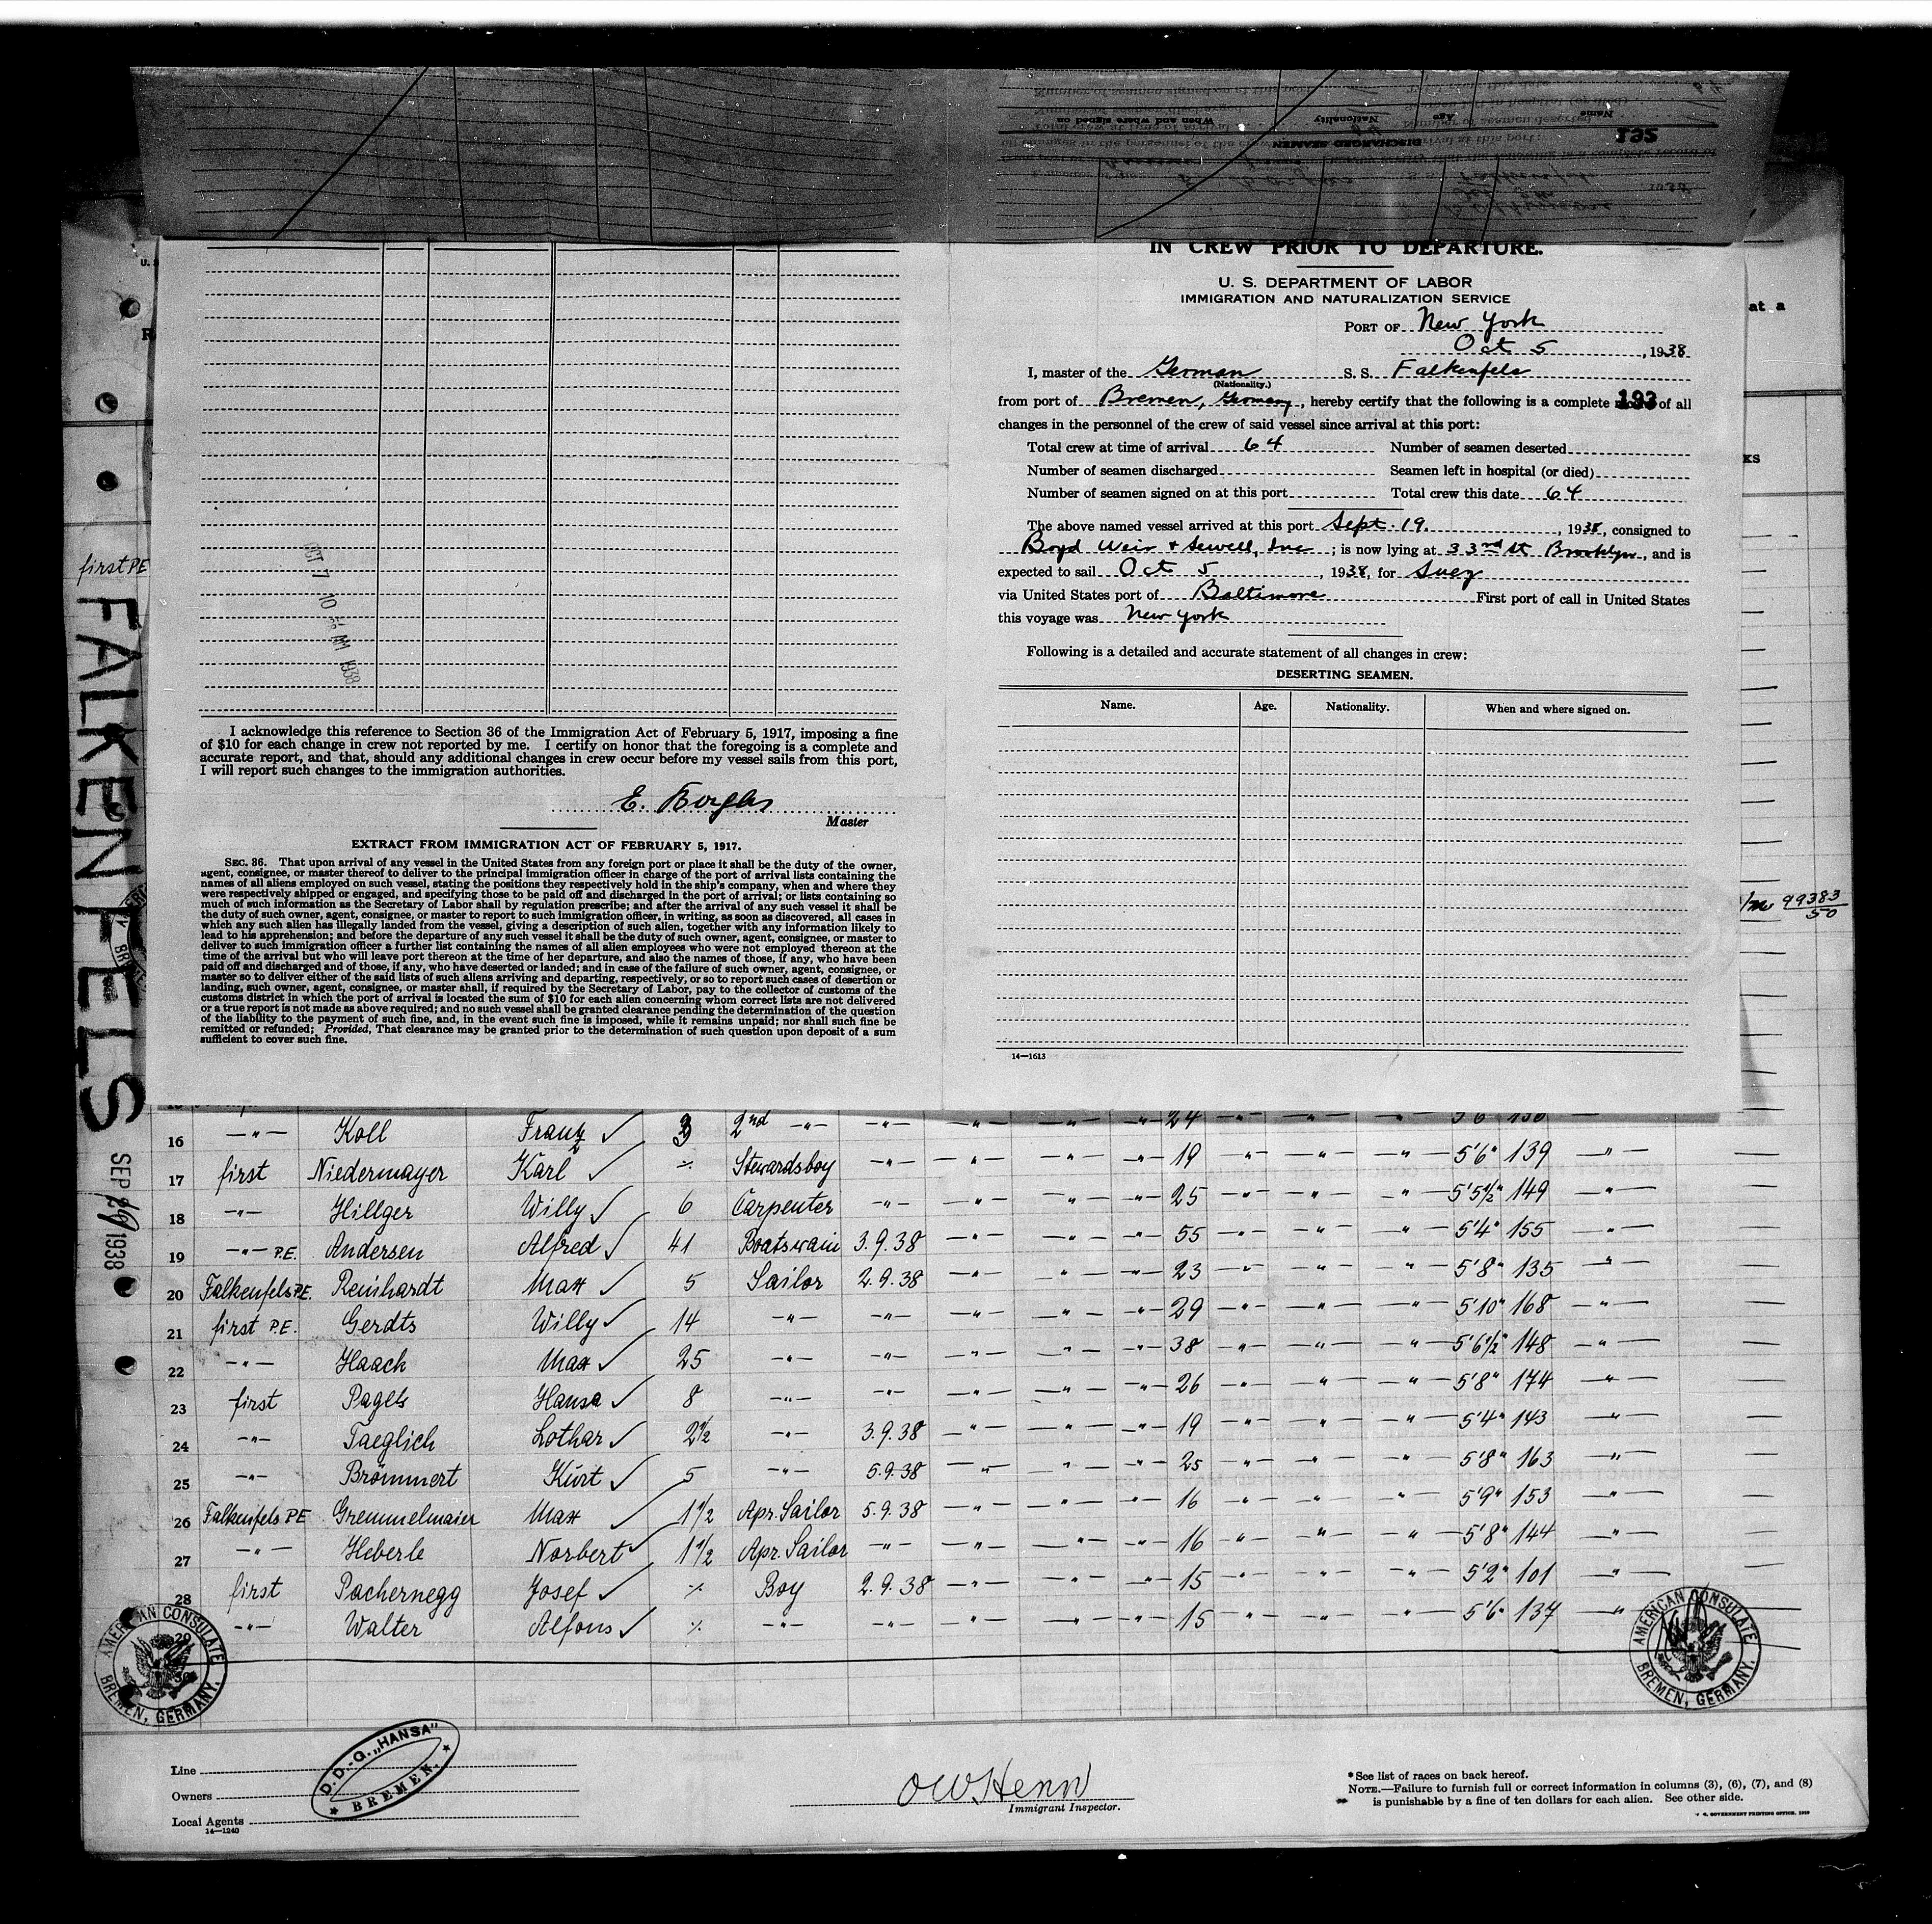 IN CREW PRIOR TO DEPARTURE.
U. S. DEPARTMENT OF LABOR
IMMIGRATION AND NATURALIZATION SERVICE
PORT OF New York
Oct 5, 1938
I, master of the German S. S. Falkenfels
(Nationality.)
from port of Bremen, Germany, hereby certify that the following is a complete of all
193
changes in the personnel of the crew of said vessel since arrival at this port:
Total crew at time of arrival 64 Number of seamen deserted
Number of seamen discharged Seamen left in hospital (or died)
Number of seamen signed on at this port Total crew this date 64
The above named vessel arrived at this port Sept. 19, 1938, consigned to
Boyd Weir & Sewell, Inc; is now lying at 33rd St Brooklyn, and is
expected to sail Oct 5, 1938, for Suez
via United States port of Baltimore First port of call in United States
this voyage was New York
Following is a detailed and accurate statement of all changes in crew:
DESERTING SEAMEN.
Name. Age. Nationality. When and where signed on.
14—1613
OCT 7 10 AM 1938
I acknowledge this reference to Section 36 of the Immigration Act of February 5, 1917, imposing a fine
of $10 for each change in crew not reported by me. I certify on honor that the foregoing is a complete and
accurate report, and that, should any additional changes in crew occur before my vessel sails from this port,
I will report such changes to the immigration authorities.
E.
Master
EXTRACT FROM IMMIGRATION ACT OF FEBRUARY 5, 1917.
SEC. 36. That upon arrival of any vessel in the United States from any foreign port or place it shall be the duty of the owner,
agent, consignee, or master thereof to deliver to the principal immigration officer in charge of the port of arrival lists containing the
names of all aliens employed on such vessel, stating the positions they respectively hold in the ship's company, when and where they
were respectively shipped or engaged, and specifying those to be paid off and discharged in the port of arrival; or lists containing so
much of such information as the Secretary of Labor shall by regulation prescribe; and after the arrival of any such vessel it shall be
the duty of such owner, agent, consignee, or master to report to such immigration officer, in writing, as soon as discovered, all cases in
which any such alien has illegally landed from the vessel, giving a description of such alien, together with any information likely to
lead to his apprehension; and before the departure of any such vessel it shall be the duty of such owner, agent, consignee, or master to
deliver to such immigration officer a further list containing the names of all alien employees who were not employed thereon at the
time of the arrival but who will leave port thereon at the time of her departure, and also the names of those, if any, who have been
paid off and discharged and of those, if any, who have deserted or landed; and in case of the failure of such owner, agent, consignee, or
master so to deliver either of the said lists of such aliens arriving and departing, respectively, or so to report such cases of desertion or
landing, such owner, agent, consignee, or master shall, if required by the Secretary of Labor, pay to the collector of customs of the
customs district in which the port of arrival is located the sum of $10 for each alien concerning whom correct lists are not delivered
or a true report is not made as above required; and no such vessel shall be granted clearance pending the determination of the question
of the liability to the payment of such fine, and, in the event such fine is imposed, while it remains unpaid; nor shall such fine be
remitted or refunded; Provided, That clearance may be granted prior to the determination of such question upon deposit of a sum
sufficient to cover such fine.
at a
KS
first PE
99383
50
FALKENFELS
SEP 19 1938
16 —"— Koll Franz ✓ 3 2nd —"— —"— —"— —"— —"— 24 —"— —"— —"— 5'6" 130 —
17 first Niedermayer Karl ✓ ⁒ Stewardsboy —"— —"— —"— —"— 19 —"— —"— —"— 5'6" 139 —"— —
18 —"— Hillger Willy ✓ 6 Carpenter —"— —"— —"— —"— 25 —"— —"— —"— 5'5½" 149 —"— —
19 —"— P.E. Andersen Alfred ✓ 41 Boatswain 3.9.38 —"— —"— —"— 55 —"— —"— —"— 5'4" 155 —"— —
20 Falkenfels P.E. Reinhardt Max ✓ 5 Sailor 2.9.38 —"— —"— —"— 23 —"— —"— —"— 5'8" 135 —"— —
21 first P.E. Gerdts Willy ✓ 14 —"— —"— —"— —"— —"— 29 —"— —"— —"— 5'10" 168 —"— —
22 —"— Haack Max ✓ 25 —"— —"— —"— —"— —"— 38 —"— —"— —"— 5'6½" 148 —"— —
23 first Pagels Hansa ✓ 8 —"— —"— —"— —"— —"— 26 —"— —"— —"— 5'8" 174 —"— —
24 —"— Taeglich Lothar ✓ 2½ —"— 3.9.38 —"— —"— —"— 19 —"— —"— —"— 5'4" 143 —"— —
25 —"— Brömmert Kurt ✓ 5 —"— 5.9.38 —"— —"— —"— 25 —"— —"— —"— 5'8" 163 —"— —
26 Falkenfels PE Gremmelmaier Max ✓ 1½ Apr. Sailor 5.9.38 —"— —"— —"— 16 —"— —"— —"— 5'9" 153 —"— —
27 —"— Heberle Norbert ✓ 1½ Apr. Sailor —"— —"— —"— —"— 16 —"— —"— —"— 5'8" 144 —"— —
28 first Pachernegg Josef ✓ ⁒ Boy 2.9.38 —"— —"— —"— 15 —"— —"— —"— 5'2" 101 —"— —
29 —"— Walter Alfons ✓ ⁒ —"— —"— —"— —"— —"— 15 —"— —"— —"— 5'6" 137 —"— —
30
AMERICAN CONSULATE
BREMEN, GERMANY.
AMERICAN CONSULATE
BREMEN, GERMANY.
Line
Owners
Local Agents
14—1240
D. D.-G. „HANSA"
* BREMEN. *
OWHenn
Immigrant Inspector.
*See list of races on back hereof.
NOTE.—Failure to furnish full or correct information in columns (3), (6), (7), and (8)
is punishable by a fine of ten dollars for each alien. See other side.